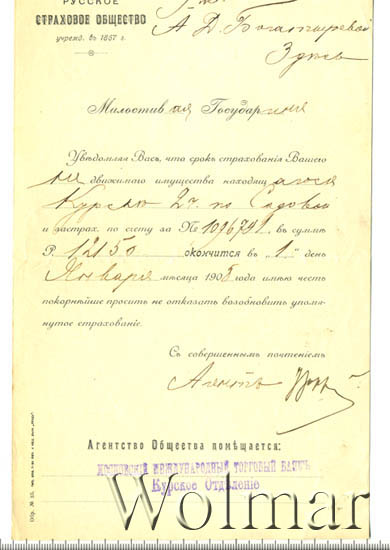 РУССКОЕ
СТРАХОВОЕ ОБЩЕСТВО
учрежд. въ 1867 г.
А Д. Богатыревой
Здѣсь
Милостивая Государыня
Увѣдомляя Васъ, что срокъ страхованія Вашего
не движимаго имущества находящагося
Курскѣ 2ч по Садовой
и застрах. по счету за № 1096791 въ суммѣ
Р. 12150 окончится въ "1" день
Января мѣсяца 1908 года имѣю честь
покорнѣйше просить не отказать возобновить упомя-
нутое страхованіе.
Съ совершеннымъ почтеніемъ
Агентъ
Агентство Общества помѣщается:
МОСКОВСКІЙ МЕЖДУНАРОДНЫЙ ТОРГОВЫЙ БАНКЪ
Курское Отдѣленіе
Wolmar